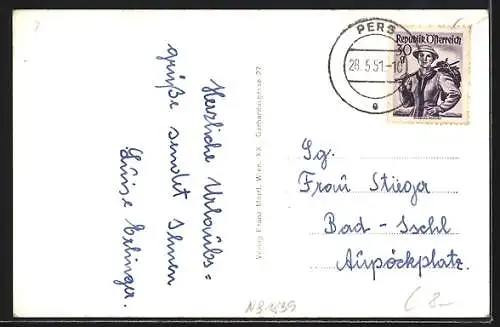 Herzliche Urlaubs=
grüße sendet Ihnen
Luise Erlinger.
Verlag Franz Mörtl, Wien, XX. Gerhardusgasse 27
PERS
28.5.51.-10
e
Republik Österreich
30
g
Sg.
Frau Stieger
Bad - Ischl
Aupöckplatz.